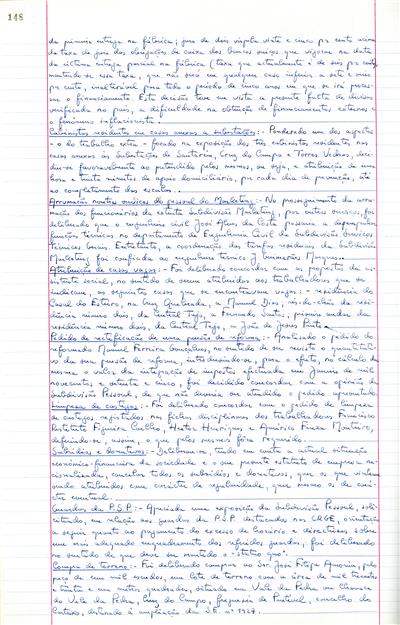 148
da primeira entrega na fábrica; juro de dois vírgula vinte e cinco por cento acima
da taxa de juro das obrigações de caixa dos bancos suíços que vigorar na data
da última entrega parcial na fábrica (taxa que actualmente é de seis por cento)
mantendo-se essa taxa, que não será em qualquer caso inferior a sete e meio
por cento, inalterável para todo o período de cinco anos em que se irá proces-
sar o financiamento. Esta decisão teve em vista a presente falta de divisas
verificada no país, a dificuldade na obtenção de financiamentos externos e
o fenómeno inflacionista.
Cabinistas residentes em casas anexas a subestações:- Ponderado um dos aspectos
- o do trabalho extra - focado na exposição dos três cabinistas residentes nas
casas anexas às Subestações de Santarém, Cruz do Campo e Torres Vedras, deci-
diu-se favoravelmente ao pretendido pelos mesmos, ou seja, atribuição de uma
hora e trinta minutos de apoio domiciliário, por cada dia de prevenção, até
ao completamento dos escalões.
Arrumação noutros serviços do pessoal do Marketing:- No prosseguimento da arru-
mação dos funcionários da extinta Subdivisão Marketing, por outros serviços, foi
deliberado que o engenheiro civil José Alves da Costa passaria a desempenhar
funções técnicas no departamento de Engenharia Civil da Subdivisão Serviços
Técnicos Gerais. Entretanto, a coordenação das tarefas residuais da Subdivisão
Marketing foi confiada ao engenheiro técnico J. Guimarães Marques.
Atribuição de casas vagas:- Foi deliberado concordar com as propostas da as-
sistente social, no sentido de serem atribuídas aos trabalhadores que se
indicam, as seguintes casas que se encontravam vagas: - residência do
Casal do Esteiro, na Cruz Quebrada, a Manuel Dias; rés-do-chão da resi-
dência número dois, da Central Tejo, a Fernando Santos; primeiro andar da
residência número dois, da Central Tejo, a João de Jesus Pinto.
Pedido de rectificação de uma pensão de reforma:- Analisado o pedido do
reformado Manuel Ferreira Gonçalves, no sentido de ser revisto o quantitati-
vo da sua pensão de reforma, introduzindo-se, para o efeito, no cálculo da
mesma o valor da integração de impostos efectuada em Junho de mil
novecentos e setenta e cinco, foi decidido concordar com a opinião da
Subdivisão Pessoal, de que não deveria ser atendido o pedido apresentado.
Limpeza de castigos:- Foi deliberado concordar com o pedido de limpeza
de castigos, registados nas fichas disciplinares dos trabalhadores Francisco
Restituto Figueira Coelho, Heitor Henriques e Américo Fouza Monteiro,
deferindo-se, assim, o que pelos mesmos fora requerido.
Subsídios e donativos:- Deliberou-se, tendo em conta a actual situação
económico-financeira da sociedade e o seu presente estatuto de empresa na-
cionalizada, cancelar todos os subsídios e donativos, que se que vinham
sendo atribuídos com carácter de regularidade, quer mesmo os de cará-
cter eventual.
Guardas da P.S.P.:- Apreciada uma exposição da Subdivisão Pessoal, soli-
citando, em relação aos guardas da P.S.P. destacados nas CRGE, orientação
a seguir quanto ao pagamento do excesso de horário e directrizes sobre
um mais adequado enquadramento dos referidos guardas, foi deliberado
no sentido de que deve ser mantido o "status quo".
Compra de terreno:- Foi deliberado comprar ao Sr. José Filipe Amorim, pelo
preço de cem mil escudos, um lote de terreno com a área de mil trezentos
e trinta e um metros quadrados, situado em Vale da Pedra ou Charneca
do Vale da Pedra, Cruz do Campo, freguesia de Pontével, concelho do
Cartaxo, destinado à ampliação da S.E. nº 1927.